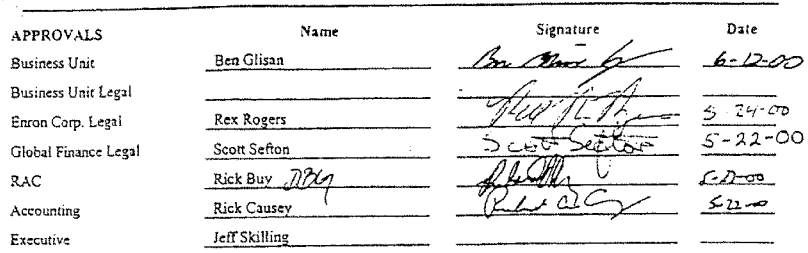 APPROVALS Name Signature Date
Business Unit Ben Glisan 6-12-00
Business Unit Legal
Enron Corp. Legal Rex Rogers 5-24-00
Global Finance Legal Scott Sefton Scott Sefton 5-22-00
RAC Rick Buy
Accounting Rick Causey 5-22-00
Executive Jeff Skilling